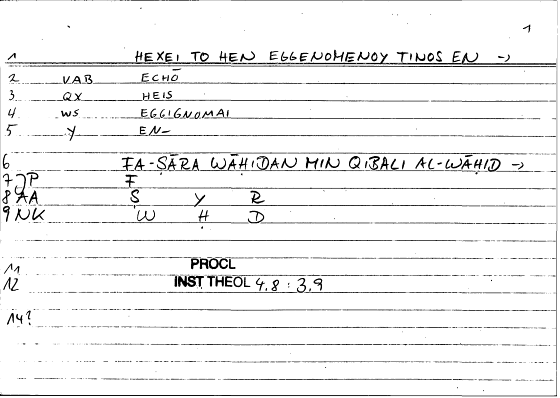 1
1 HEXEI TO HEN EGGENOMENOY TINOS EN →
2 VAB ECHŌ
3 QX HEIS
4 WS EGGIGNOMAI
5 Y EN-
6 FA-ṢĀRA WĀḤIDAN MIN QIBALI AL-WĀḤID →
7 JP F
8 AA Ṣ Y R
9 NK W Ḥ D
11 PROCL
12 INST THEOL 4.8 : 3.9
14?